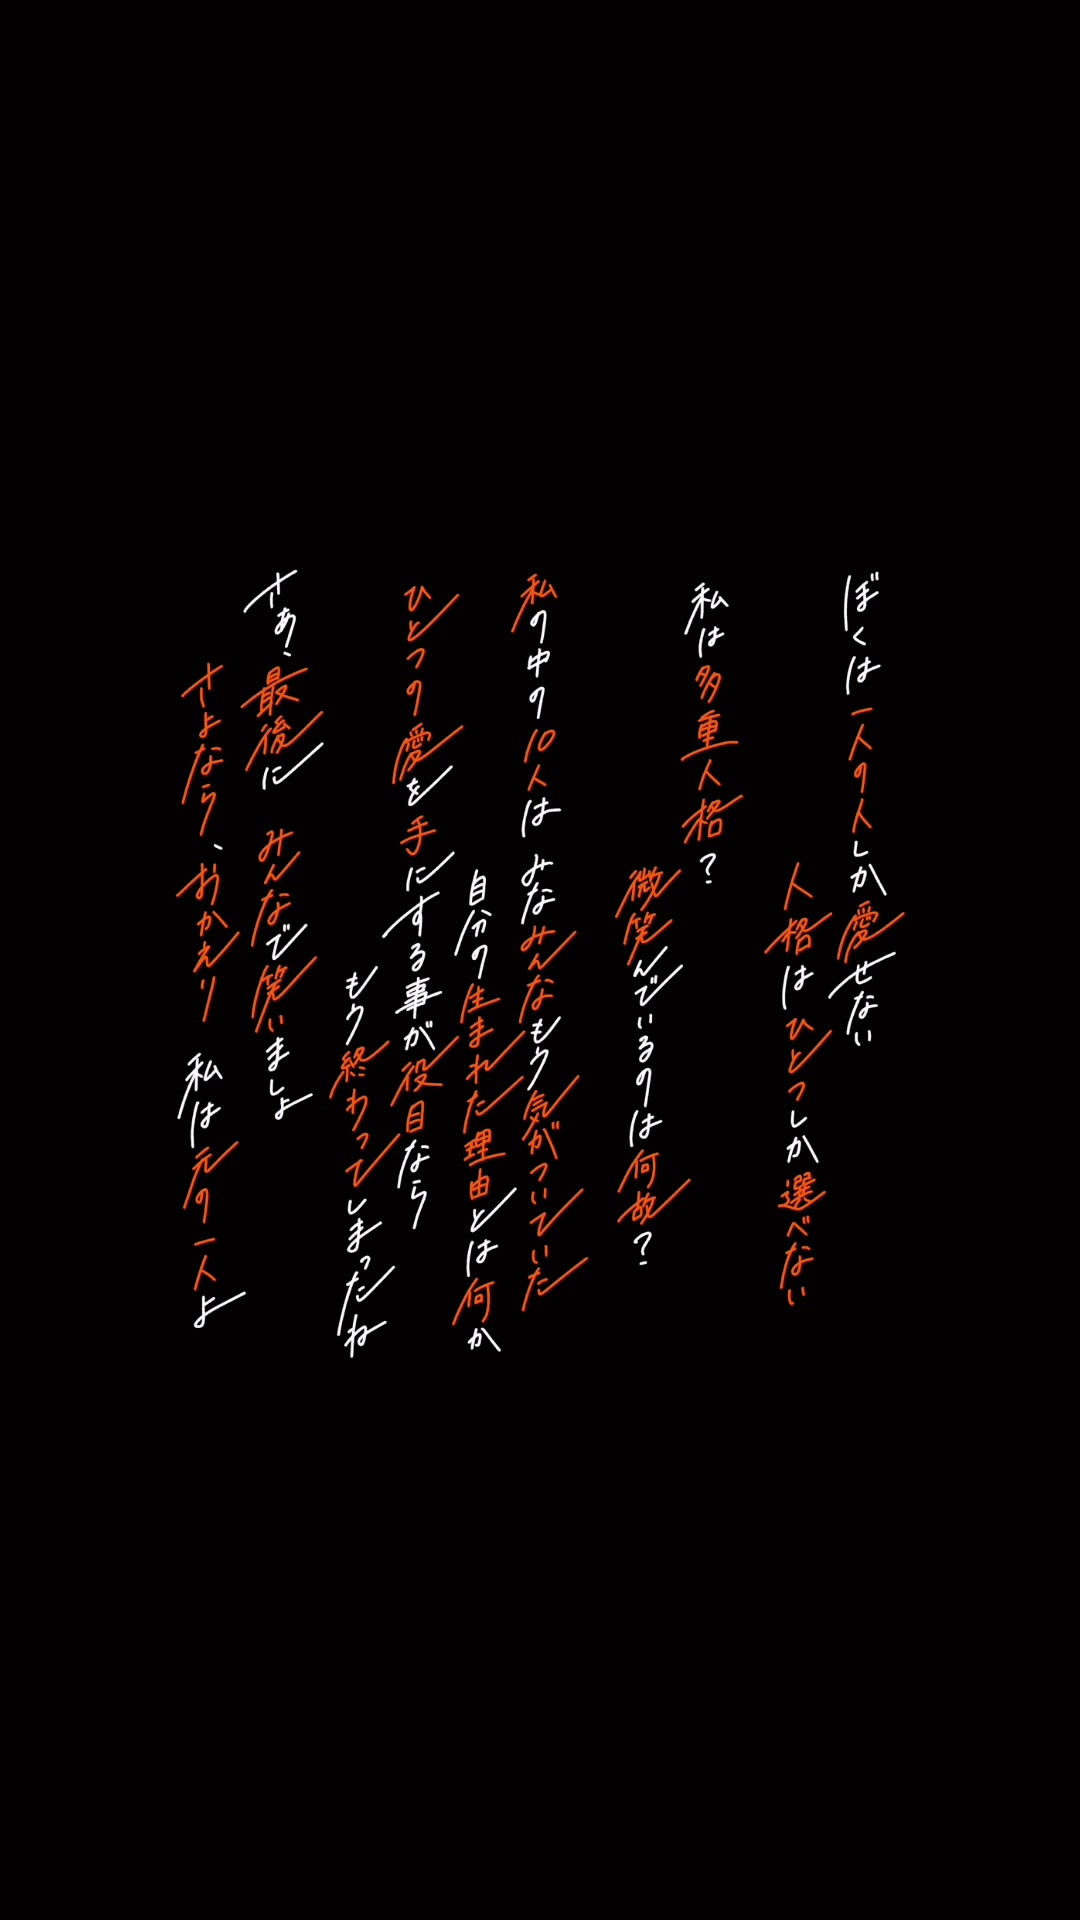 ぼくは一人の人しか愛せない
人格はひとつしか選べない
私は多重人格?
微笑んでいるのは何故?
私の中の10人は みなみんなもう気がついていた
自分の生まれた理由とは何か
ひとつの愛を手にする事が役目なら
もう終わってしまったね
さあ、最後に みんなで笑いましょ
さよなら、おかえり 私は元の一人よ